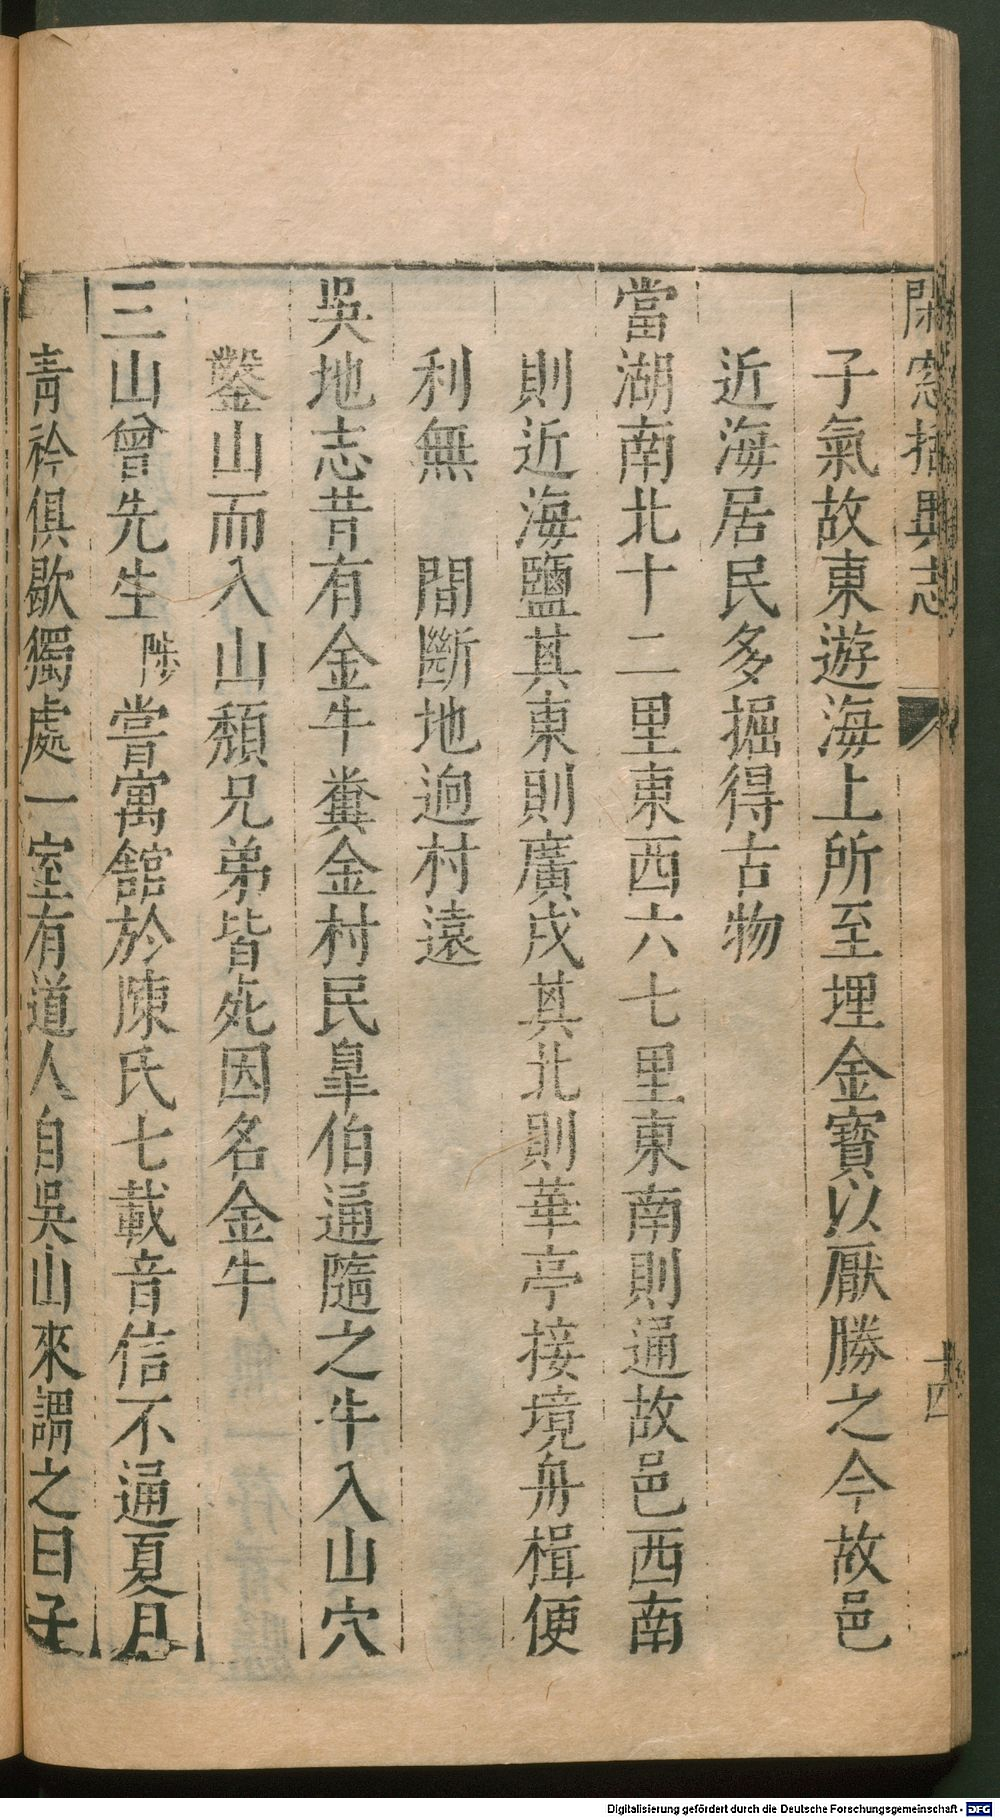 閑窓括異志
十四
子氣故東遊海上所至埋金寶以厭勝之今故邑
近海居民多掘得古物
當湖南北十二里東西六七里東南則通故邑西南
則近海鹽其東則廣戌其北則華亭接境舟楫便
利無 間斷地逈村遠
吳地志昔有金牛糞金村民皐伯通隨之牛入山穴
鑿山而入山頹兄弟皆死因名金牛
三山曾先生陟嘗寓舘於陳氏七載音信不通夏月
青衿俱歇獨處一室有道人自吳山來謂之曰子
Digitalisierung gefördert durch die Deutsche Forschungsgemeinschaft - DFG